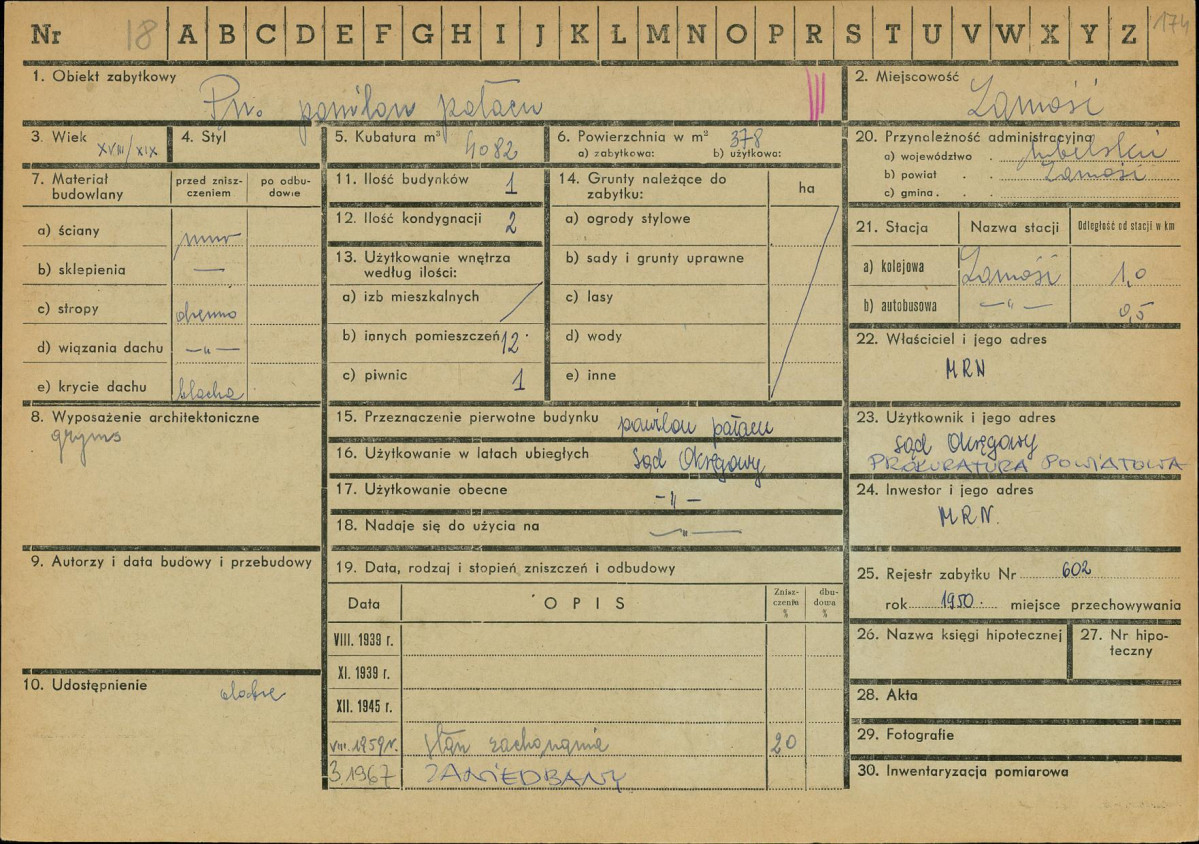 Nr 18 A B C D E F G H I J K L M N O P R S T U V W X Y Z 174
1. Obiekt zabytkowy
Pn. pawilon pałacu
III
2. Miejscowość
Zamość
3. Wiek
XVIII/XIX
4. Styl
5. Kubatura m³
4082
6. Powierzchnia w m² 378
a) zabytkowa: b) użytkowa:
20. Przynależność administracyjna
a) województwo . lubelskie
b) powiat . . Zamość
c) gmina . .
7. Materiał budowlany
przed zniszczeniem
po odbudowie
a) ściany mur
b) sklepienia —
c) stropy drewno
d) wiązania dachu —„—
e) krycie dachu blacha
11. Ilość budynków 1
12. Ilość kondygnacji 2
13. Użytkowanie wnętrza według ilości:
a) izb mieszkalnych /
b) innych pomieszczeń 12
c) piwnic 1
14. Grunty należące do zabytku:
ha
a) ogrody stylowe
b) sady i grunty uprawne
c) lasy
d) wody
e) inne
21. Stacja
Nazwa stacji
Odległość od stacji w km
a) kolejowa Zamość 1,0
b) autobusowa —„— 0,5
22. Właściciel i jego adres
MRN
8. Wyposażenie architektoniczne
gzyms
15. Przeznaczenie pierwotne budynku pawilon pałacu
16. Użytkowanie w latach ubiegłych Sąd Okręgowy
17. Użytkowanie obecne —„—
18. Nadaje się do użycia na —„—
23. Użytkownik i jego adres
Sąd Okręgowy
PROKURATURA POWIATOWA
24. Inwestor i jego adres
MRN.
9. Autorzy i data budowy i przebudowy
10. Udostępnienie dobre
19. Data, rodzaj i stopień zniszczeń i odbudowy
Data
OPIS
Zniszczenia %
dbudowa %
VIII. 1939 r.
XI. 1939 r.
XII. 1945 r.
VIII. 1959 r. stan zachowania 20
3.1967 ZANIEDBANY
25. Rejestr zabytku Nr 602
rok 1950. miejsce przechowywania
26. Nazwa księgi hipotecznej
27. Nr hipoteczny
28. Akta
29. Fotografie
30. Inwentaryzacja pomiarowa